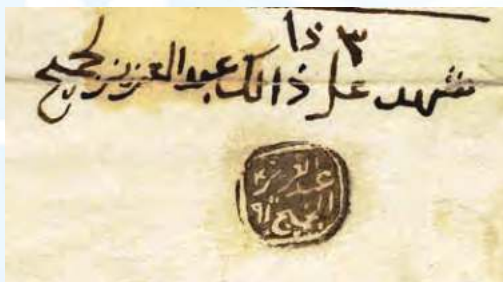 ٣ ذا
شهد على ذالك عبد العزيز الجميح
عبد العزيز
الجميح